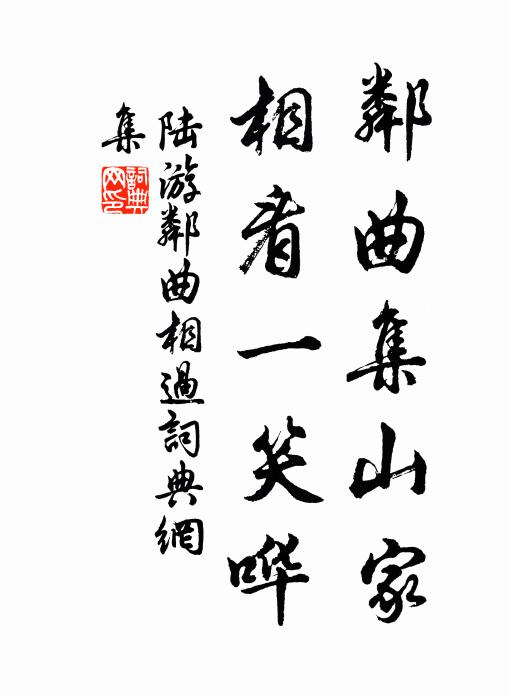 鄰曲集山家
相看一笑哗
陆游鄰曲相過詞典網
集
詞典
网印